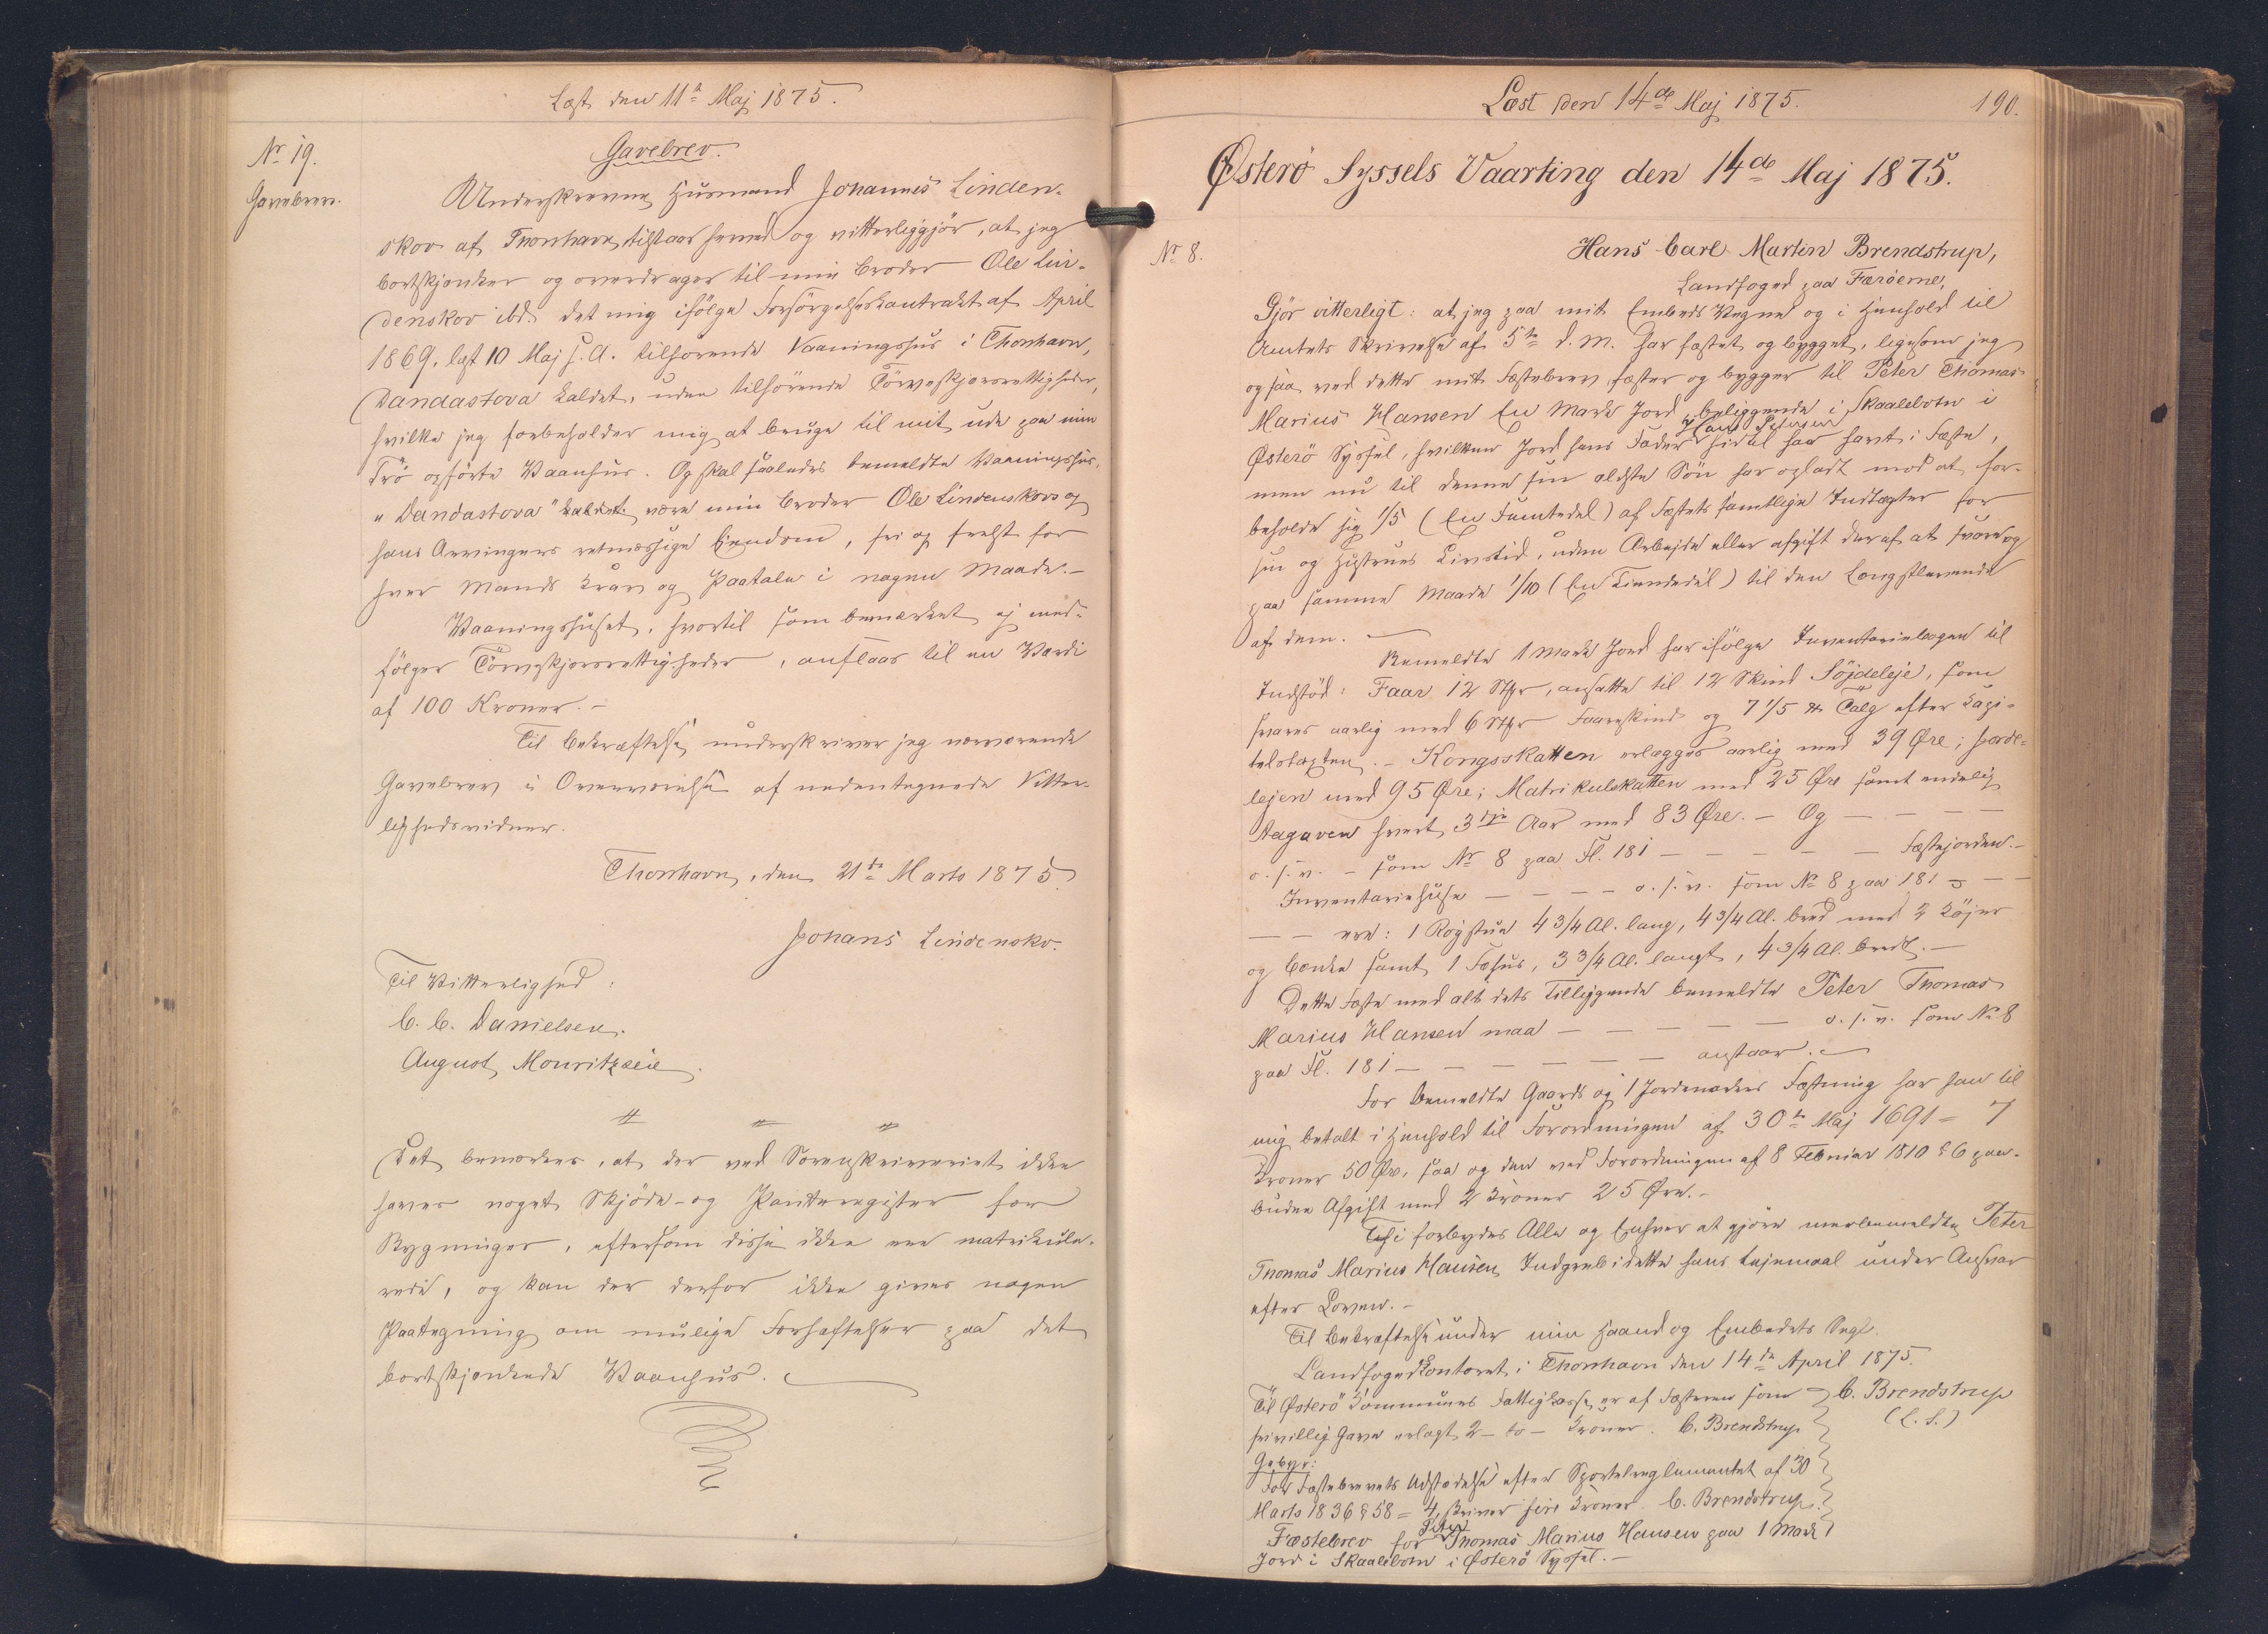 Læst den 11te Maj 1875.
Nr. 19.
Gavebrev.
Gavebrev.
Underskrevne Husmand Johannes Linden-
skov af Thorshavn tilstaar herved og vitterliggjör, at jeg
bortskjenker og overdrager til min Broder Ole Lin-
denskov ibd. det mig ifölge Forsörgelseskontrakt af April
1869, læst 10 Maj s. A. tilhörende Vaaningshus i Thorshavn,
Dandastova kaldet, uden tilhörende Törveskjærsrettigheder,
hvilke jeg forbeholder mig at bruge til mit ude paa min
Trö opförte Vaanhus. Og skal saaledes bemeldte Vaaningshus,
"Dandastova" kaldet være min Broder Ole Lindenskovs og
hans Arvingers retmæssige Eiendom, fri og frelst for
hver Mands Krav og Paatale i nogen Maade.-
Vaaningshuset, hvortil som bemærket ej med-
fölger Törveskjærsrettigheder, anslaaes til en Værdi
af 100 Kroner.-
Til Bekræftelse underskriver jeg nærværende
Gavebrev i Overværelse af nedentegnede Vitter-
lighedsvidner.
Thorshavn, den 21de Marts 1875.
Johans Lindensko.
Til Vitterlighed:
C. C. Danielsen.
August Mouritzsen.
Det bemærkes, at der ved Sorenskriveriet ikke
haves noget Skjöde- og Panteregister for
Bygninger, eftersom disse ikke ere matrikule-
rede, og kan der derfor ikke gives nogen
Paategning om mulige Forhæftelser paa det
bortskjænkede Vaanhus.
Læst den 14de Maj 1875.
190.
Østerö Syssels Vaarting den 14de Maj 1875.
Nr. 8.
Hans Carl Martin Brendstrup,
Landfoged paa Færöerne,
Gjör vitterligt: at jeg paa mit Embeds Vegne og i Henhold til
Amtets Skrivelse af 5te d. M. har fæstet og bygget, ligesom jeg
ogsaa ved dette mit Fæstebrev fæster og bygger til Peter Thomas
Marius Hansen En Mark Jord beliggende i Skaalebotn i
Østerö Syssel, hvilken Jord hans Fader Hans Petersen hidtil har havt i Fæste,
men nu til denne sin ældste Sön har opladt mod at for-
beholde sig 1/5 (En Femtedel) af Fæstets samtlige Indtægter for
sin og Hustrues Livstid, uden Arbejde eller Afgift deraf at svare og
paa samme Maade 1/10 (En Tiendedel) til den Længstlevende
af dem.
Bemeldte 1 Mark Jord har ifölge Inventariebogen til
Indstöd: Faar 12 Stkr, ansatte til 12 Skind Söjdeleje, som
svares aarlig med 6 Stkr Faareskind og 7 1/5 ℔ Talg efter Kapi-
telstaxten.- Kongsskatten erlægges aarlig med 39 Øre; Jorde-
lejen med 95 Øre; Matrikulskatten med 25 Øre samt endelig
Aagaven hvert 3die Aar med 83 Øre.- Og - - -
o. s. v. - som Nr 8 paa Fl. 181 - - - - - Fæstejorden.-
Inventariehuse - - - - o. s. v. som Nr 8 paa 181 - -
- - ere: 1 Rögstue 4 3/4 Al. lang, 4 3/4 Al. bred med 2 Köjer
og Bænke samt 1 Fæhus, 3 3/4 Al. langt, 4 3/4 Al. bredt.-
Dette Fæste med alt dets Tilliggende bemeldte Peter Thomas
Marius Hansen maa - - - - - o. s. v. som Nr 8
paa Fl. 181 - - - - - - anstaar.
For bemeldte Gaards og 1 Jordemarks Fæstning har han til
mig betalt i Henhold til Forordningen af 30te Maj 1691 = 7
Kroner 50 Øre, saa og den ved Forordningen af 8 Februar 1810 § 6 paa-
budne Afgift med 2 Kroner 25 Øre.-
Thi forbydes Alle og Enhver at gjöre merbemeldte Peter
Thomas Marius Hansen Indgreb i dette hans Lejemaal under Ansvar
efter Loven.-
Til Bekræftelse under min Haand og Embedets Segl.
Landfogedkontoret i Thorshavn den 14de April 1875.
C. Brendstrup
(L. S.)
Til Østerö Kommunes Fattigkasse er af Fæsteren som
frivillig Gave erlagt 2 - to - Kroner. C. Brendstrup
Gebyr:
For Fæstebrevets Udstedelse efter Sportelreglementet af 30
Marts 1836 § 58 = 4, skriver fire Kroner. C. Brendstrup.
Fæstebrev for Peter Thomas Marius Hansen paa 1 Mark
Jord i Skaalebotn i Østerö Syssel.-